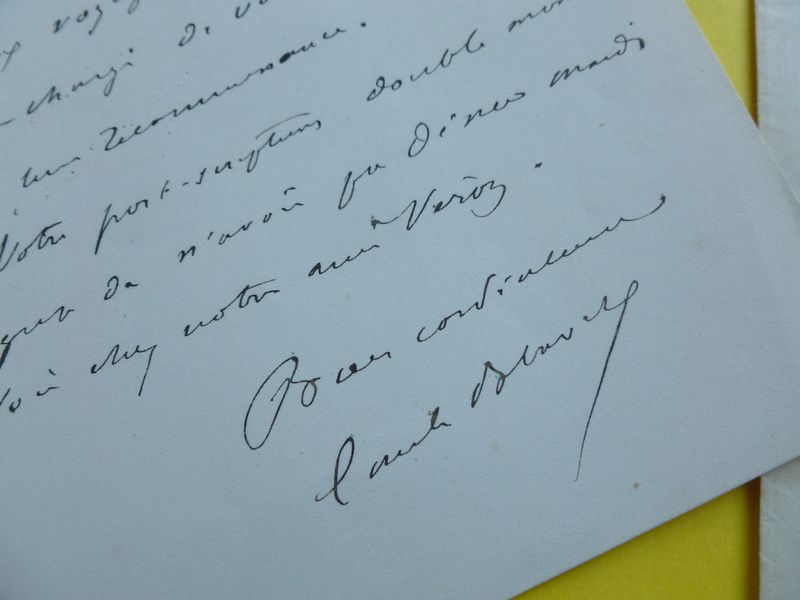 chargé de
reconnaissance.
Votre post-scriptum double mon
de n'avoir pu dîner mardi
soir chez notre ami Véron.
Bien cordialement
Emile Blavet